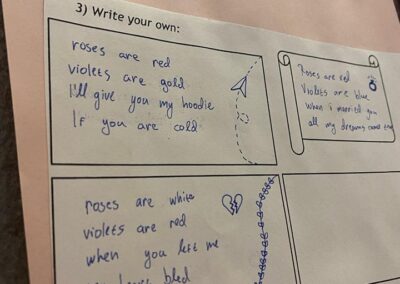 3) Write your own:
roses are red
violets are gold
I'll give you my hoodie
If you are cold
Roses are red
Violets are blue
when I married you
all my dreams came
roses are white
violets are red
when you left me
bled